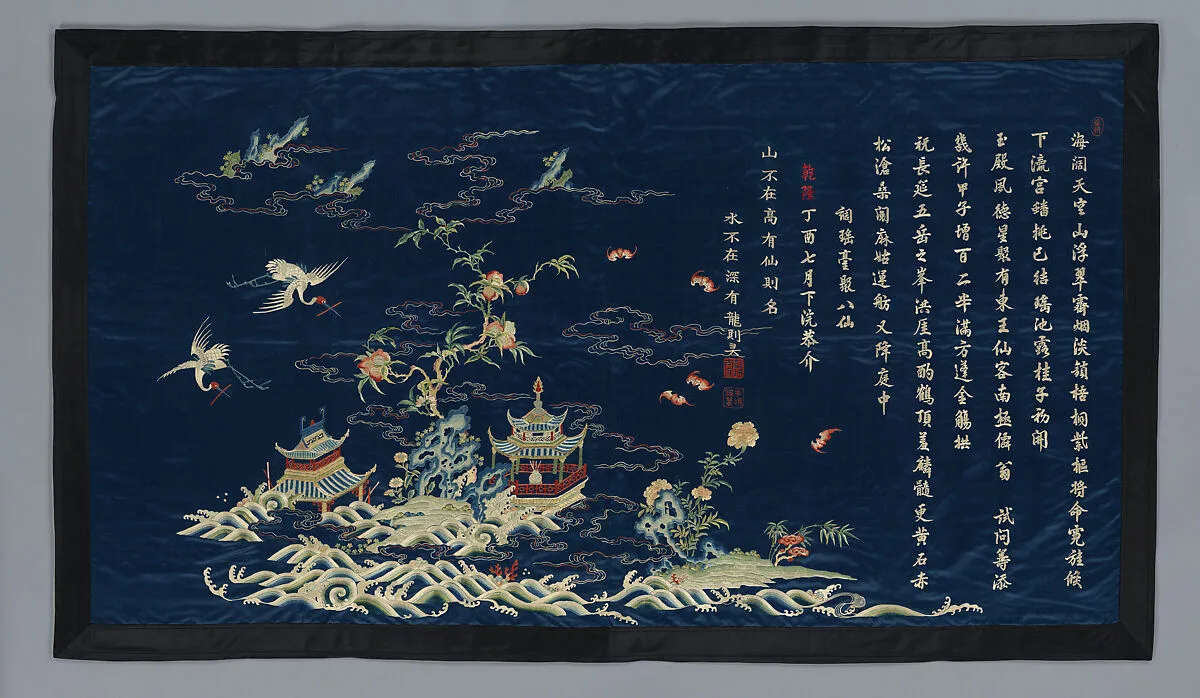 海阔天空山浮翠霽烟淡梧桐紫樞将命霓旌候
下瀛宫蟠桃已结瑶池露桂子初開
玉殿風德星聚有東王仙客南極儒翁 試問籌添
幾許甲子增百二半滿方蓬金觴拱
祝長延五岳之峯洪厓髙酌鶴頂羞麟髓更黄石赤
松滄桑閱麻姑運舫又降庭中
調瑶臺聚八仙
乾隆丁酉七月下浣恭介
山不在髙有仙則名
水不在深有龍則灵